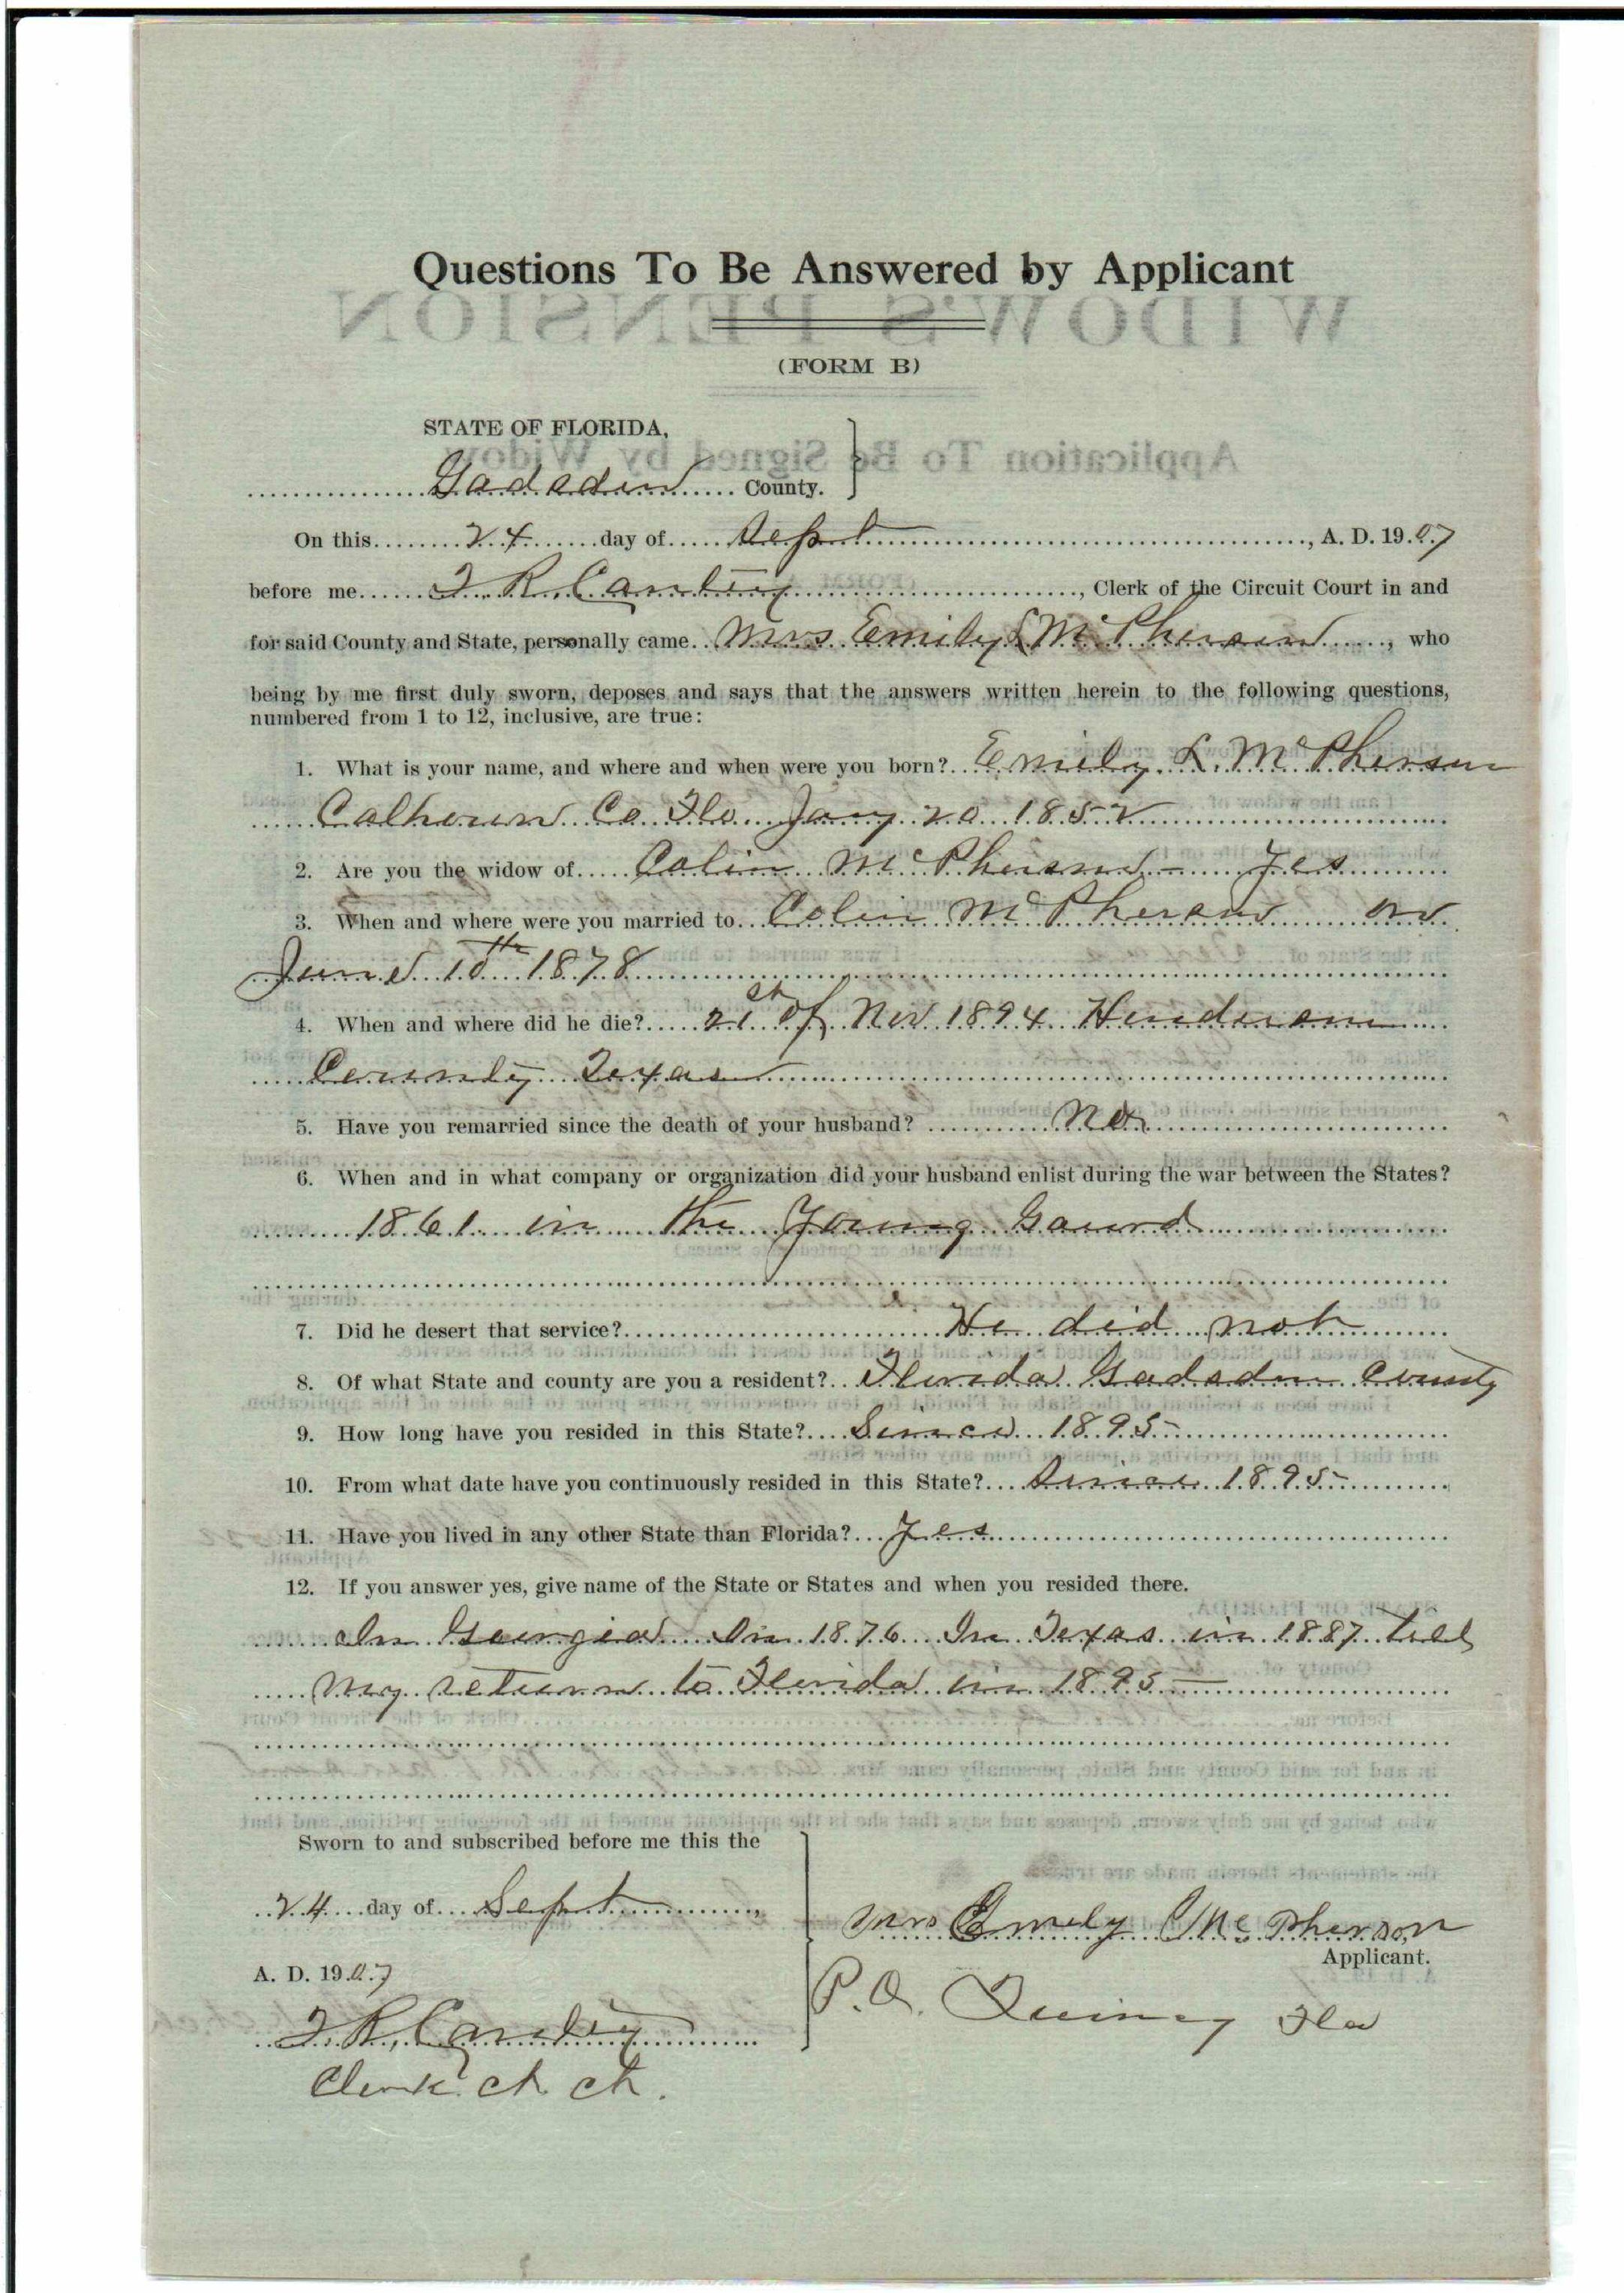 Questions To Be Answered by Applicant
(FORM B)
STATE OF FLORIDA,
Gadsden County.
On this 24 day of Sept, A. D. 1907
before me , Clerk of the Circuit Court in and
for said County and State, personally came Mrs Emily L McPherson, who
being by me first duly sworn, deposes and says that the answers written herein to the following questions,
numbered from 1 to 12, inclusive, are true:
1. What is your name, and where and when were you born? Emily L. McPherson
Calhoun Co Fla Jany 20 1852
2. Are you the widow of Colin McPherson - Yes
3. When and where were you married to Colin McPherson on
June 10th 1878
4. When and where did he die? 21st of Nov 1894 Henderson
County Texas
5. Have you remarried since the death of your husband? No
6. When and in what company or organization did your husband enlist during the war between the States?
1861 in the Young Gaurd
7. Did he desert that service? He did not
8. Of what State and county are you a resident? Florida Gadsden County
9. How long have you resided in this State? Since 1895-
10. From what date have you continuously resided in this State? Since 1895-
11. Have you lived in any other State than Florida? Yes
12. If you answer yes, give name of the State or States and when you resided there.
In Georgia in 1876 In Texas in 1887 till
my return to Florida in 1895 —
Sworn to and subscribed before me this the
24 day of Sept,
A. D. 1907
Clerk Ct Ct.
Mrs Emely Mc Pherson
Applicant.
P.O. Quincy Fla
WIDOW'S PENSION
Application To Be Signed by Widow